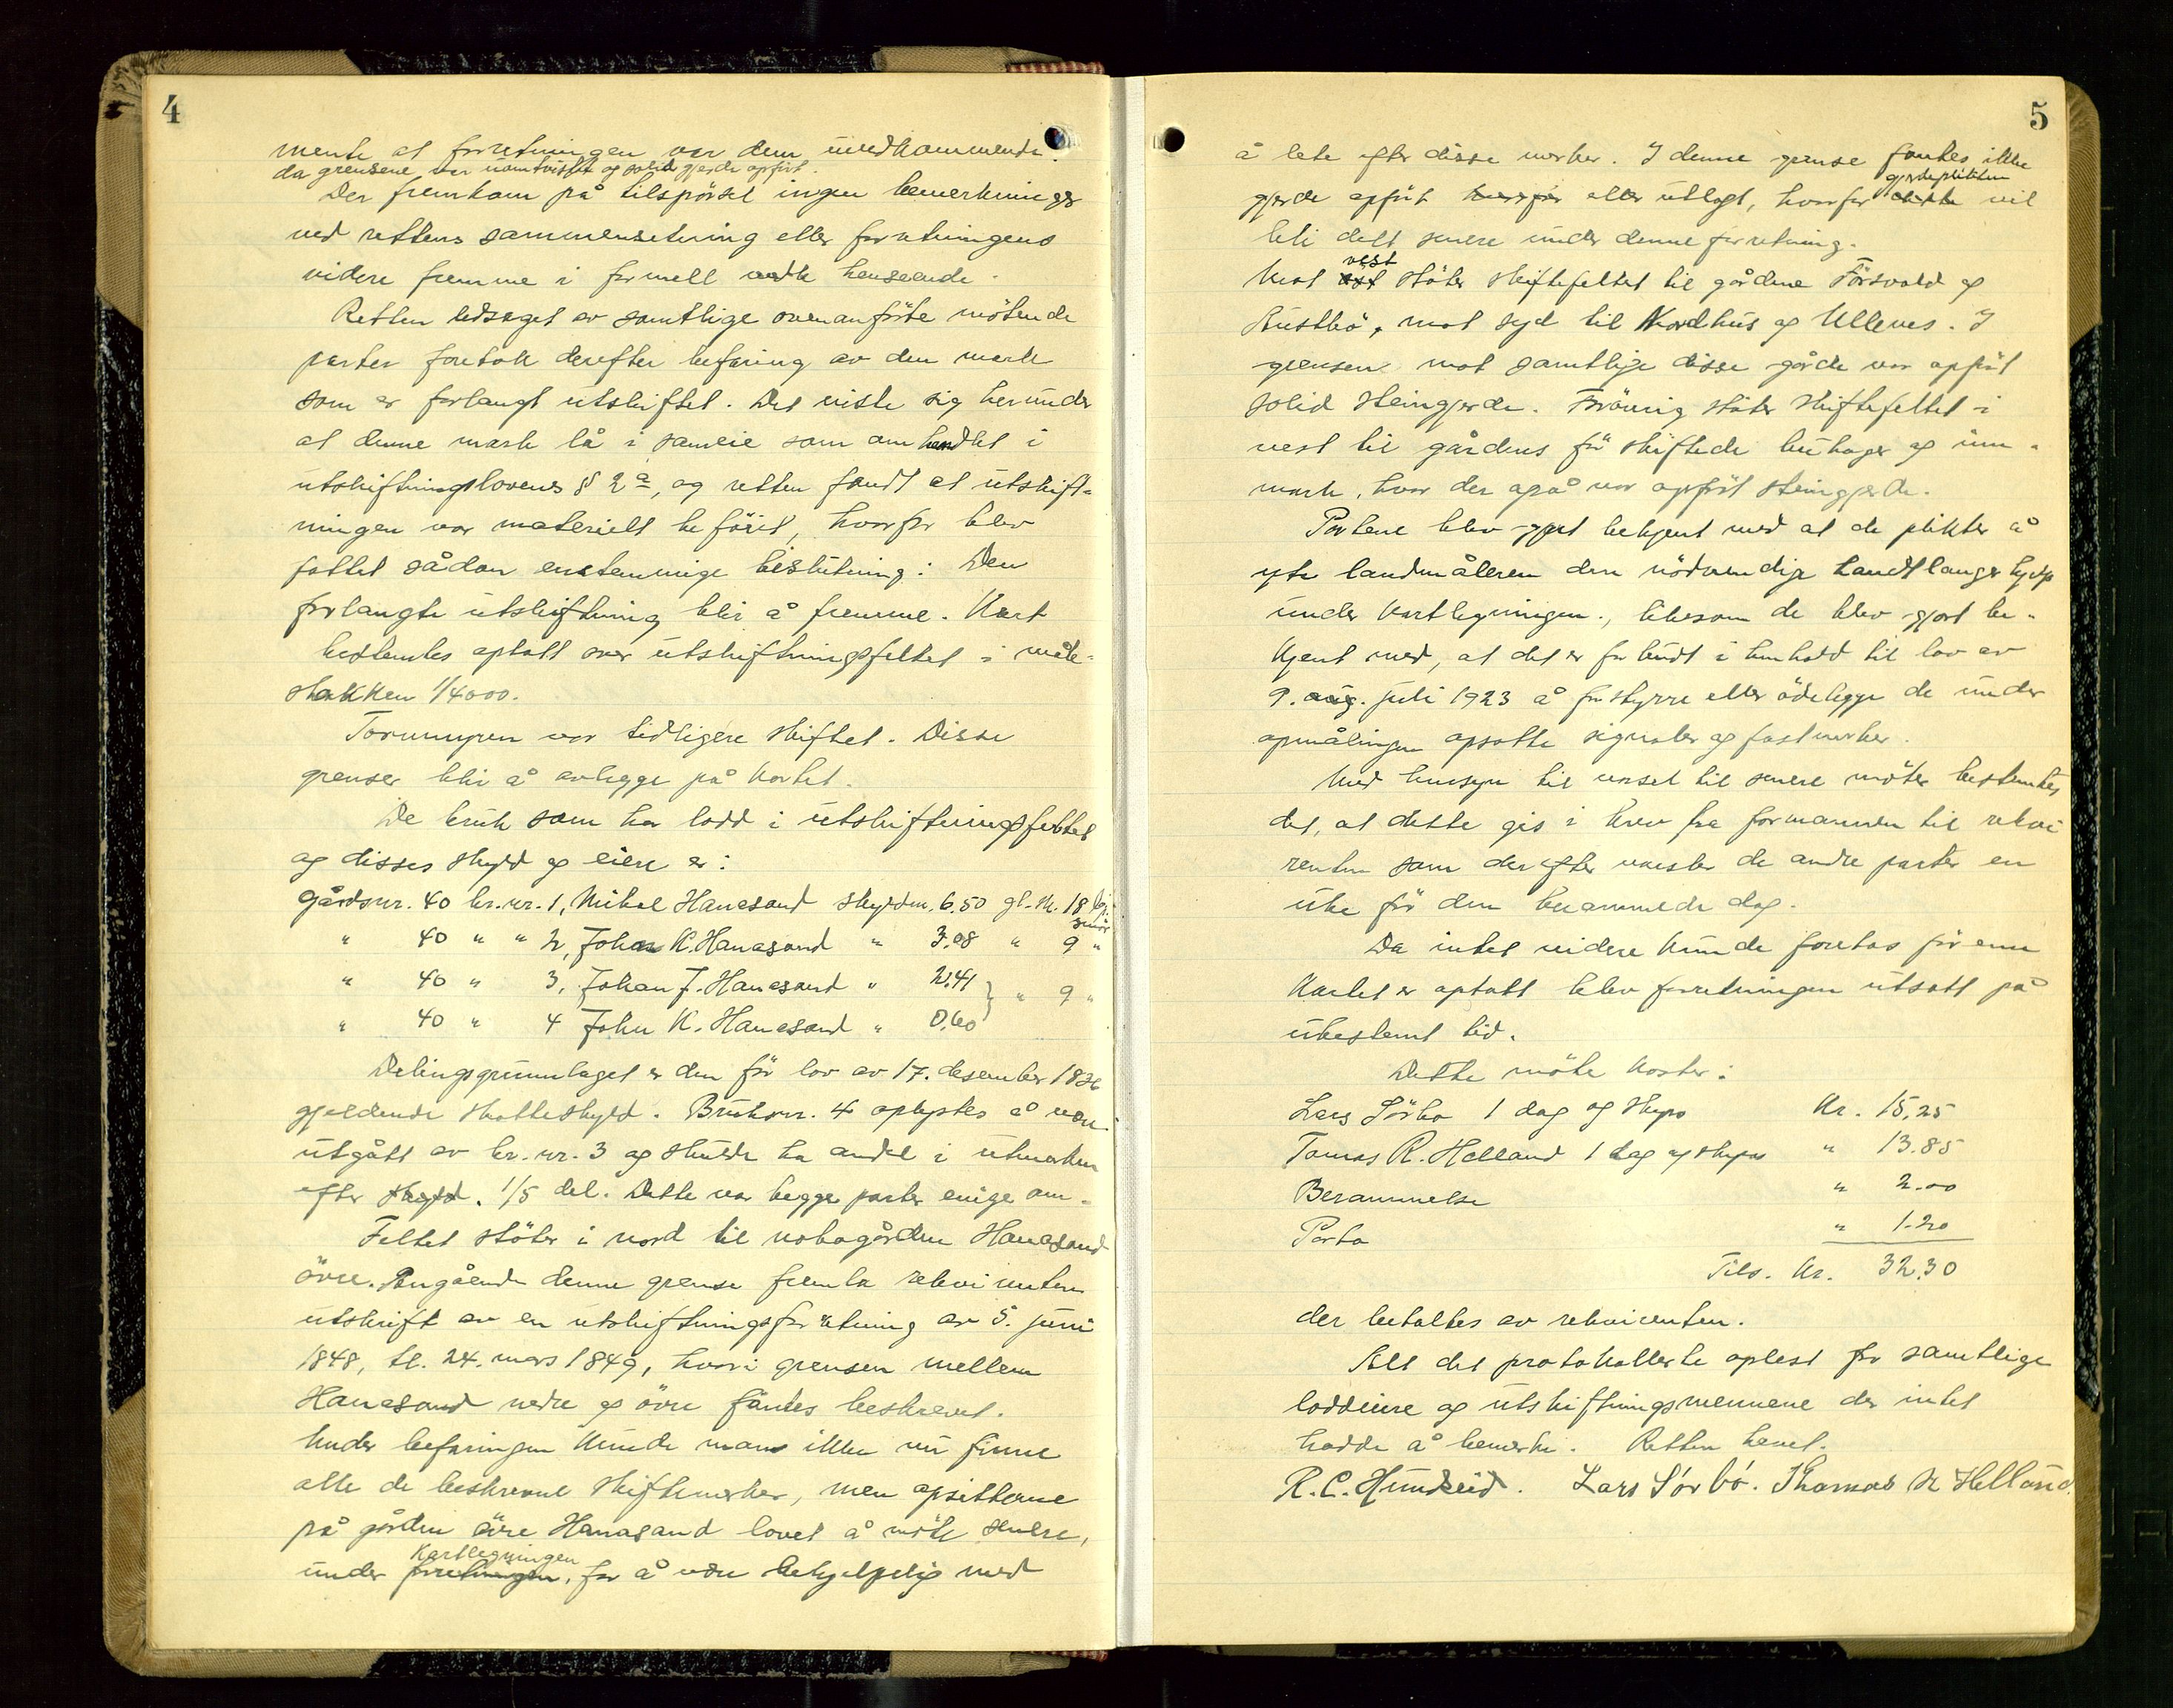 4
mente at forretningen var dem uvedkommende.
da grensene var uomtvistet og solid gjerde opført.
Der fremkom på tilspørsel ingen bemerkninger
ved rettens sammensetning eller forretningens
videre fremme i formell henseende.
Retten ledsaget av samtlige ovenanførte møtende
parter foretok derefter befaring av den mark
som er forlangt utskiftet. Det viste sig herunder
at denne mark lå i sameie som omhandlet i
utskiftningslovens § 2 a, og retten fandt at utskift-
ningen var materielt beføiet, hvorfor blev
fattet sådan enstemmige beslutning: Den
forlangte utskiftning blir å fremme. Kart
bestemtes optatt over utskiftningsfeltet i måle-
stokken 1/4000.
Torvmyren var tidligere skiftet. Disse
grenser blir å avlegge på kartet.
De bruk som har lodd i utskiftningsfeltet
og disses skyld og eiere er:
Gårdsnr. 40 br.nr. 1, Mikal Hanasand skyldm. 6.50 gl. M. 18 spj. smør
" 40 " " 2, John K. Hanasand " 3.08 " 9 "
" 40 " 3, Johan J. Hanasand " 2.41 } " 9 "
" 40 " 4 John K. Hanasand " 0.60
Delingsgrunnlaget er den før lov av 17. desember 1836
gjeldende skatteskyld. Bruksnr. 4 oplystes å være
utgått av br.nr. 3 og skulde ha andel i utmarken
efter skyld. 1/5 del. Dette var begge parter enige om.
Feltet støter i nord til nabogården Hanasand
øvre. Angående denne grense fremla rekvirenten
utskrift av en utskiftningsforretning av 5. juni
1848, tl. 24. mars 1849, hvori grensen mellem
Hanasand nedre og øvre fantes beskrevet.
Under befaringen kunde man ikke nu finne
alle de beskrevne skiftemerker, men opsitterne
på gården øvre Hanasand lovet å møte senere,
Kartlegningen
under forretningen, for å være behjelpelig med
5
å lete efter disse merker. I denne grense fantes ikke
gjerdeplikten
gjerde opført eller utlagt, hvorfor dette vil
bli delt senere under denne forretning.
vest
Mot øst støter skiftefeltet til gårdeneFørsvold og
Austbø, mot syd til Nordhus og Ullenes. I
grensen mot samtlige disse gårde var opført
solid steingjerde. Forøvrig støter skiftefeltet i
vest til gårdens før skiftede buhager og inn-
mark, hvor der også var opført steingjerde.
Partene blev gjort bekjent med at de plikter å
yte landmåleren den nødvendige handtlangerhjelp
under kartlegningen., likesom de blev gjort be-
kjent med, at det er forbudt i henhold til lov av
9. aug. juli 1923 å forstyrre eller ødelegge de under
opmålingen opsatte signaler og fastmerker.
Med hensyn til varsel til senere møter bestemtes
det, at dette gis i brev fra formannen til rekvi
renten som derefter varsler de andre parter en
uke før den berammede dag.
Da intet videre kunde foretas før enn
kartet er optatt blev forretningen utsatt på
ubestemt tid.
Dette møte koster:
Lars Sørbø 1 dag og skyss Kr. 15.25
Tomas R. Helland 1 dag og skyss " 13.85
Berammelse " 2.00
Porto " 1.20
Tils. Kr. 32.30
der betaltes av rekvirenten.
Alt det protokollerte oplest for samtlige
loddeiere og utskiftningsmennene der intet
hadde å bemerke. Retten hevet.
R. C. Hundseid. Lars Sørbø. Thomas R Helland.